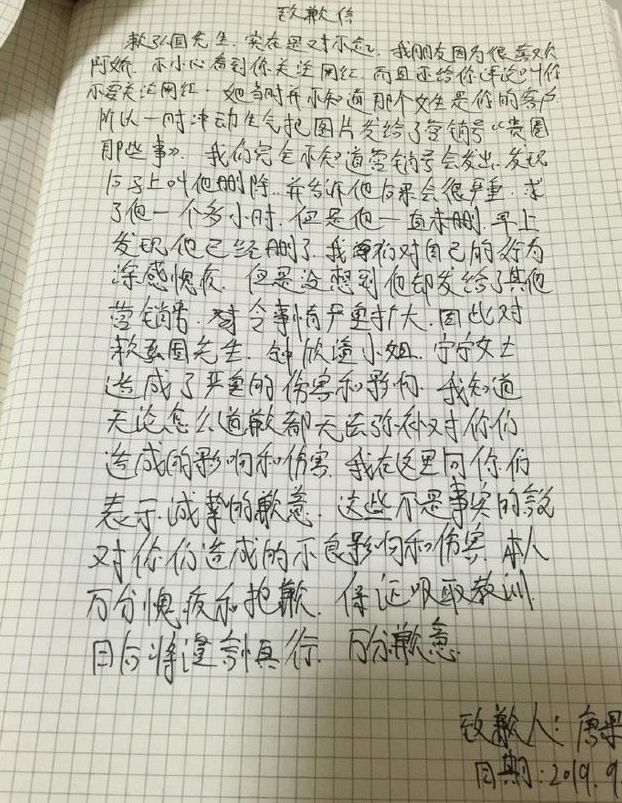 致歉信
赖弘国先生.实在是对不起.我朋友因为很喜欢
阿娇.不小心看到你关注网红.而且还给你评论叫你
不要关注网红.她当时并不知道那个女生是你的客户
所以一时冲动生气把图片发给了营销号《贵圈
那些事》.我们完全不知道营销号会发出.发现
后马上叫他删除.并告诉他后果会很严重.求
了他一个多小时.但是他一直未删.早上
发现他已经删了.我们对自己的行为
深感愧疚.但是没想到他却发给了其他
营销号.令事情严重扩大.因此对
赖弘国先生.钟欣潼小姐.宁宁女士
造成了严重的伤害和影响.我知道
无论怎么道歉都无法弥补对你们
造成的影响和伤害.我在这里向你们
表示.诚挚的歉意.这些不是事实的
对你们造成的不良影响和伤害.本人
万分愧疚和抱歉.保证吸取教训.
日后将谨言慎行.万分歉意.
致歉人:唐
日期:2019.9